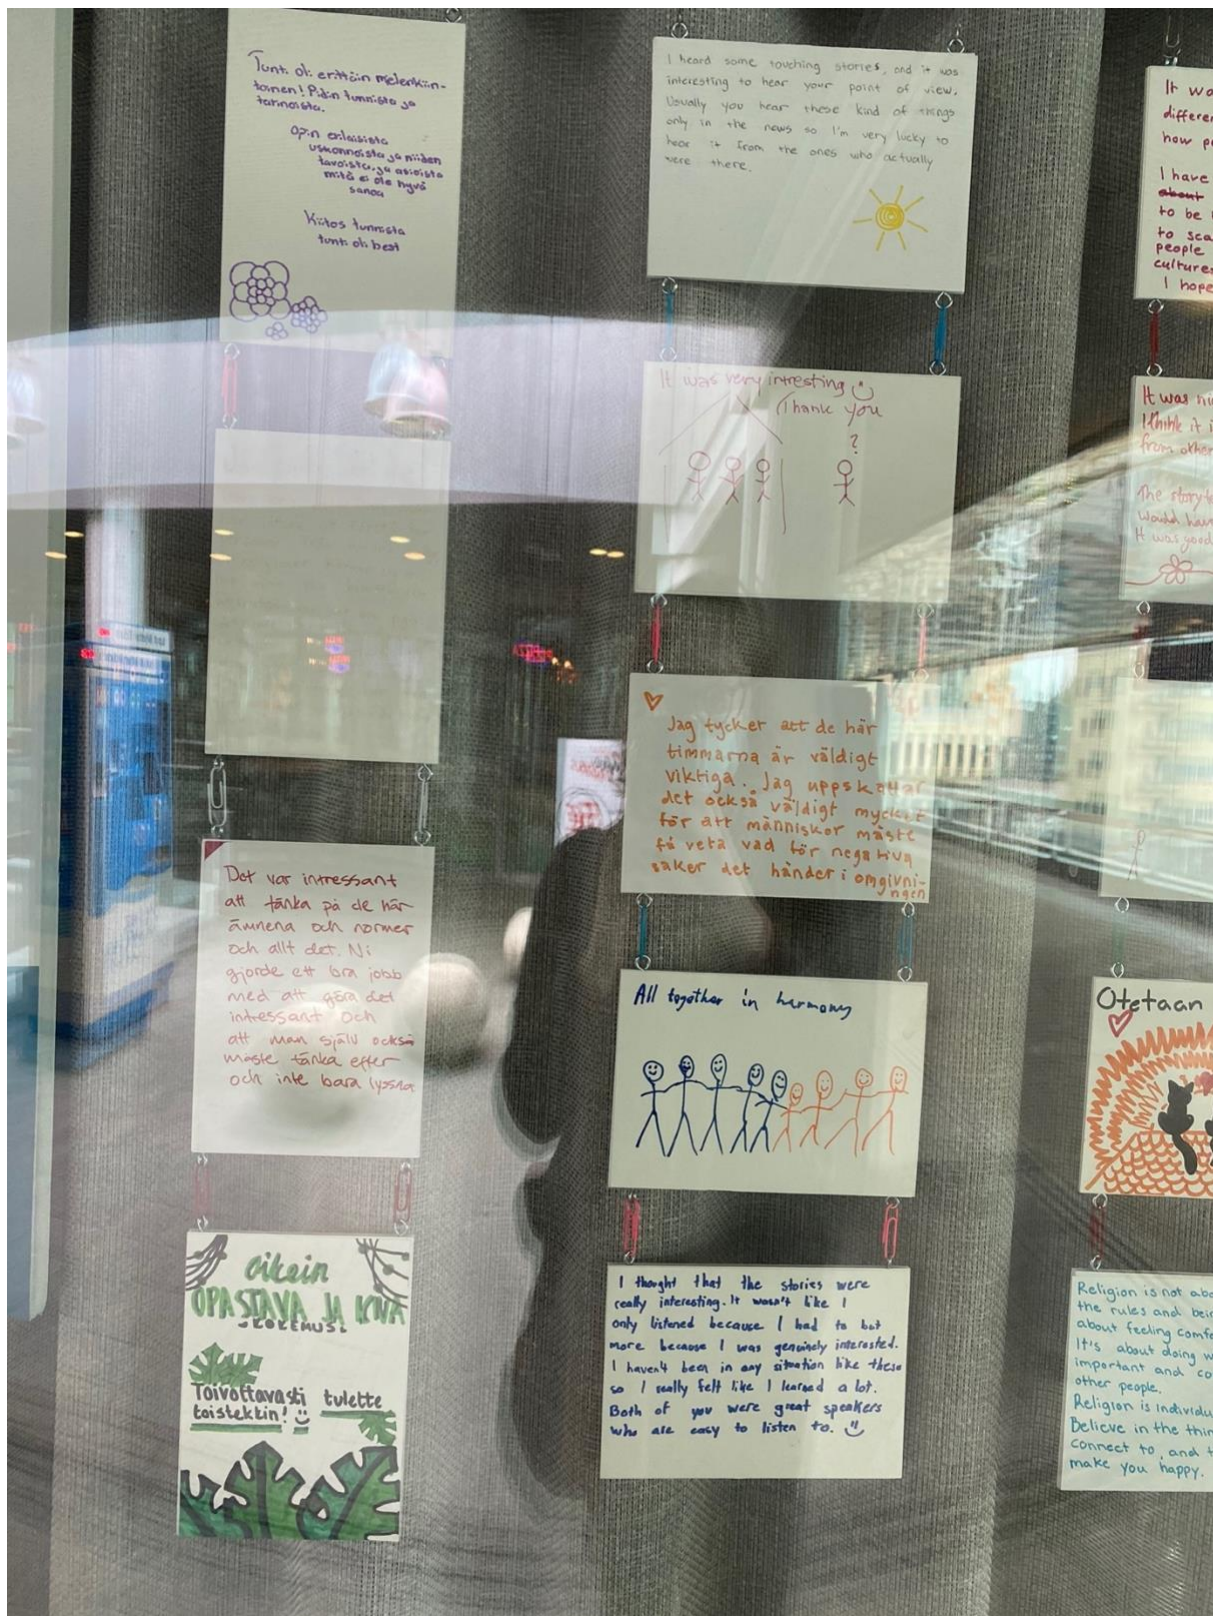 Tunti oli erittäin mielenkiin-
toinen! Pidin tunnista ja
tarinoista.
Opin erilaisista
uskonnoista ja niiden
tavoista, ja asioista
mitä ei ole hyvä
sanoa
Kiitos tunnista
tunti oli best
Det var intressant
att tänka på de här
ämnena och normer
och allt det. Ni
gjorde ett bra jobb
med att göra det
intressant och
att man själv också
måste tänka efter
och inte bara lyssna
Oikein
OPASTAVA JA KIVA
KOKEMUS!
Toivottavasti tulette
toistekkin!
I heard some touching stories, and it was
interesting to hear your point of view.
Usually you hear these kind of things
only in the news so I'm very lucky to
hear it from the ones who actually
were there.
It was very intresting
Thank you
?
Jag tycker att de här
timmarna är väldigt
viktiga. Jag uppskattar
det också väldigt mycket
för att människor måste
få veta vad för negativa
saker det händer i omgivni-
ngen
All together in harmony
I thought that the stories were
really interesting. It wasn't like I
only listened because I had to but
more because I was genuinely interested.
I haven't been in any situation like these
so I really felt like I learned a lot.
Both of you were great speakers
who are easy to listen to.
It
differen
how
I have
about
to be
to sca
people
cultures
I hope
It was
I think it
from other
The story
would hav
It was good
Otetaan
Religion is not abo
the rules and bei
about feeling comfo
It's about doing w
important and co
other people.
Religion is individu
Believe in the thin
connect to, and t
make you happy.